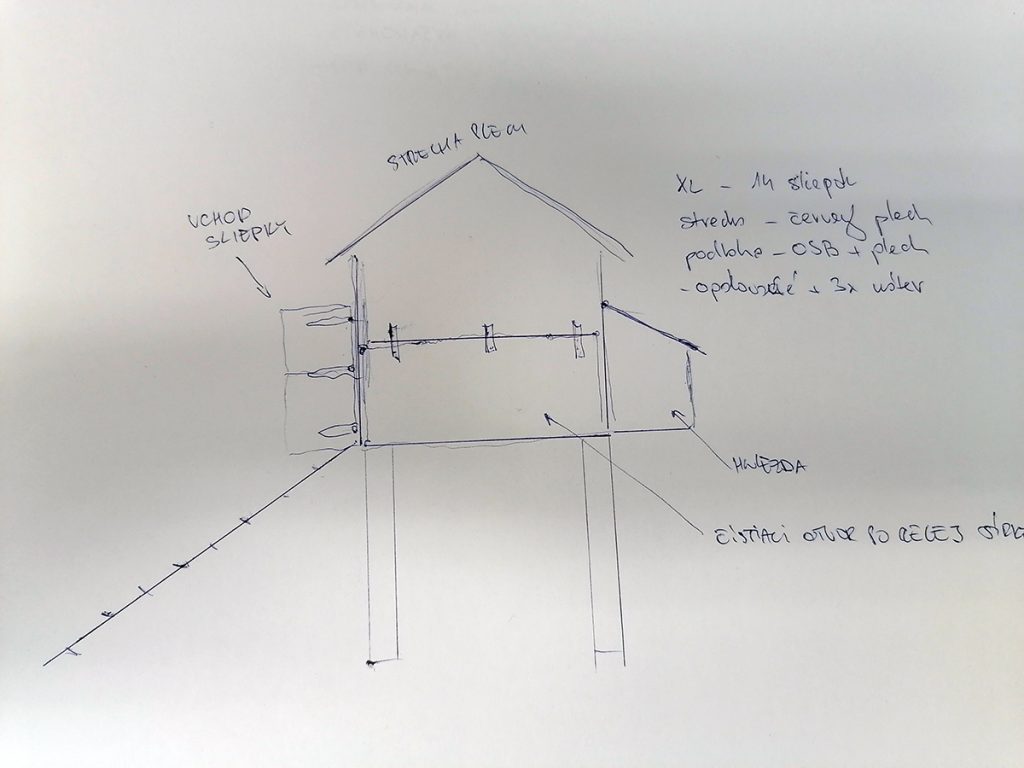 STRECHA PLECH
VCHOD
SLIEPKY
XL - 14 sliepok
strecha - červený plech
podlaha - OSB + plech
+ 3x náter
HNIEZDA
ČISTIACI OTVOR PO CELEJ